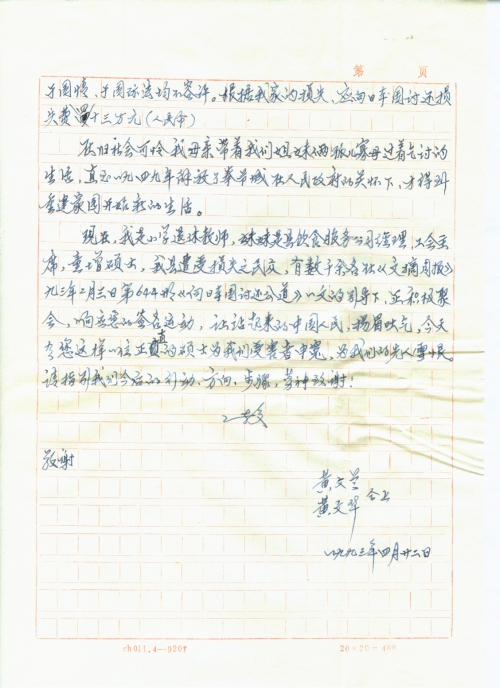 第 页
于国情,于国际法均不容许。根据我家的损失,应向日本国讨还损
失费十三万元(人民币)
在旧社会可怜我母亲带着我们姐妹俩孤儿寡母过着乞讨的
生活,直到一九四九年解放了奉节城在人民政府的关怀下,才得到
重建家园开始新的生活。
现在,我是小学退休教师,妹妹是县饮食服务公司经理,工会主
席,童增硕士,我是遭受损失之民众,有数千余名《文摘周报》
九三年二月三日第644期《向日本国讨还公道》一文的引导下,正积极聚
会,响应您的签名运动,让站起来的中国人民,扬眉吐气,今天
有您这样一位正直的硕士为我们受害者申冤,为我们的先人雪恨。
请指引我们今后的行动、方向、步骤,等神致谢!
此致
敬谢
黄文兰
黄文翠 合上
一九九三年四月廿二日
ch011.4--9207
20×20=400